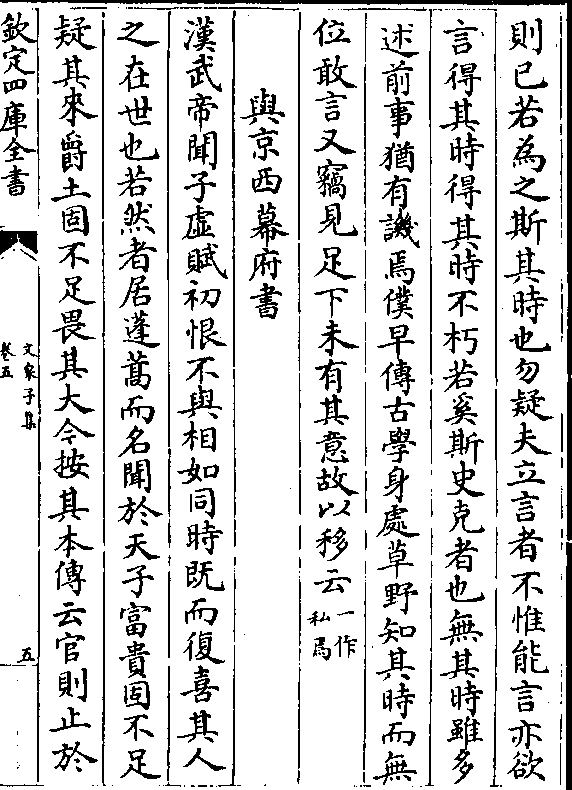 則已若為之斯其時也勿疑夫立言者不惟能言亦欲
言得其時得其時不朽若奚斯史克者也無其時雖多
述前事猶有譏焉僕早傳古學身處草野知其時而無
位敢言又竊見足下未有其意故以移云一作私焉
與京西幕府書
漢武帝聞子虛賦初恨不與相如同時既而復喜其人
之在世也若然者居蓬蒿而名聞於天子富貴固不足
疑其來爵土固不足畏其大今按其本傳云官則止於
欽定四庫全書
文泉子集
卷五
五